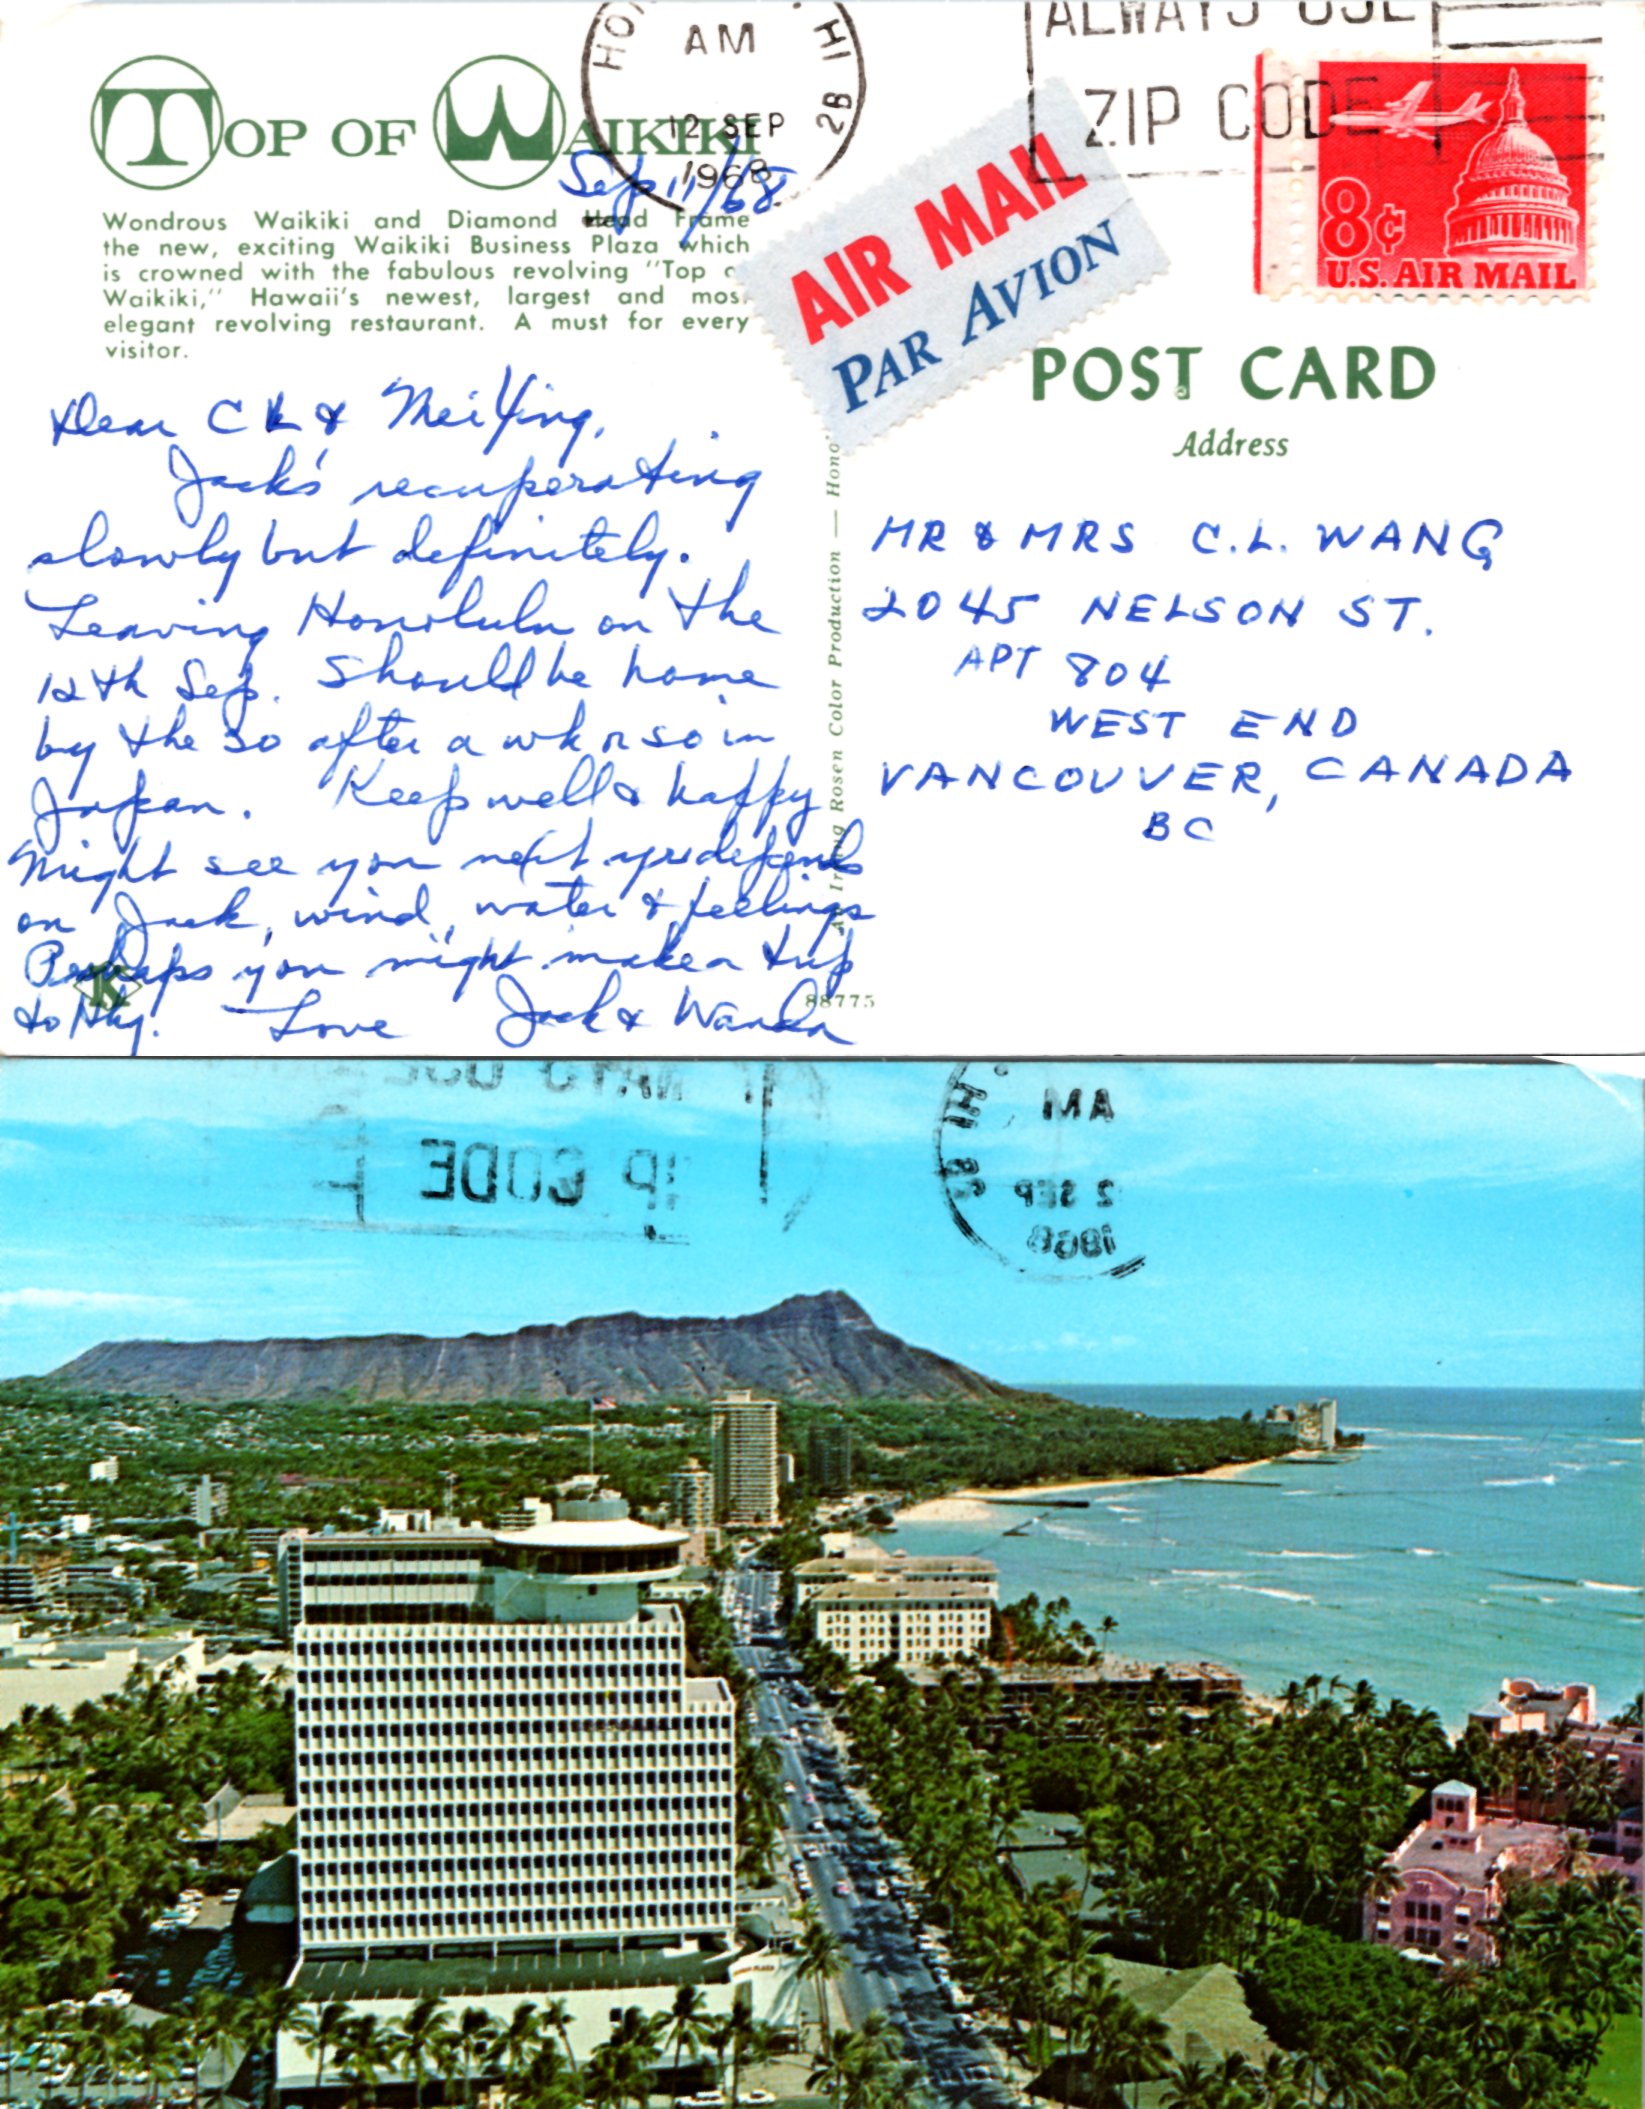 TOP OF WAIKIKI
Wondrous Waikiki and Diamond Head Frame
the new, exciting Waikiki Business Plaza which
is crowned with the fabulous revolving "Top o
Waikiki," Hawaii's newest, largest and mos
elegant revolving restaurant. A must for every
visitor.
HO HI 2B
AM
12 SEP
1968
ALWAYS USE
ZIP CODE
8¢
U.S. AIR MAIL
AIR MAIL
PAR AVION
Sep 11/68
Dear CL & Mei Ying,
Jack's recuperating
slowly but definitely.
Leaving Honolulu on the
12th Sep. Should be home
by the 30 after a wk or so in
Japan. Keep well & happy
Might see you next yr depends
on Jack, wind, water & feelings
Perhaps you might make a trip
to Hkg. Love Jack & Wanda
K
Rosen Color Production — Hono
88775
POST CARD
Address
MR & MRS C.L. WANG
2045 NELSON ST.
APT 804
WEST END
VANCOUVER, CANADA
BC
AYS USE
IP CODE
HI 2B
AM
2 SEP
1968